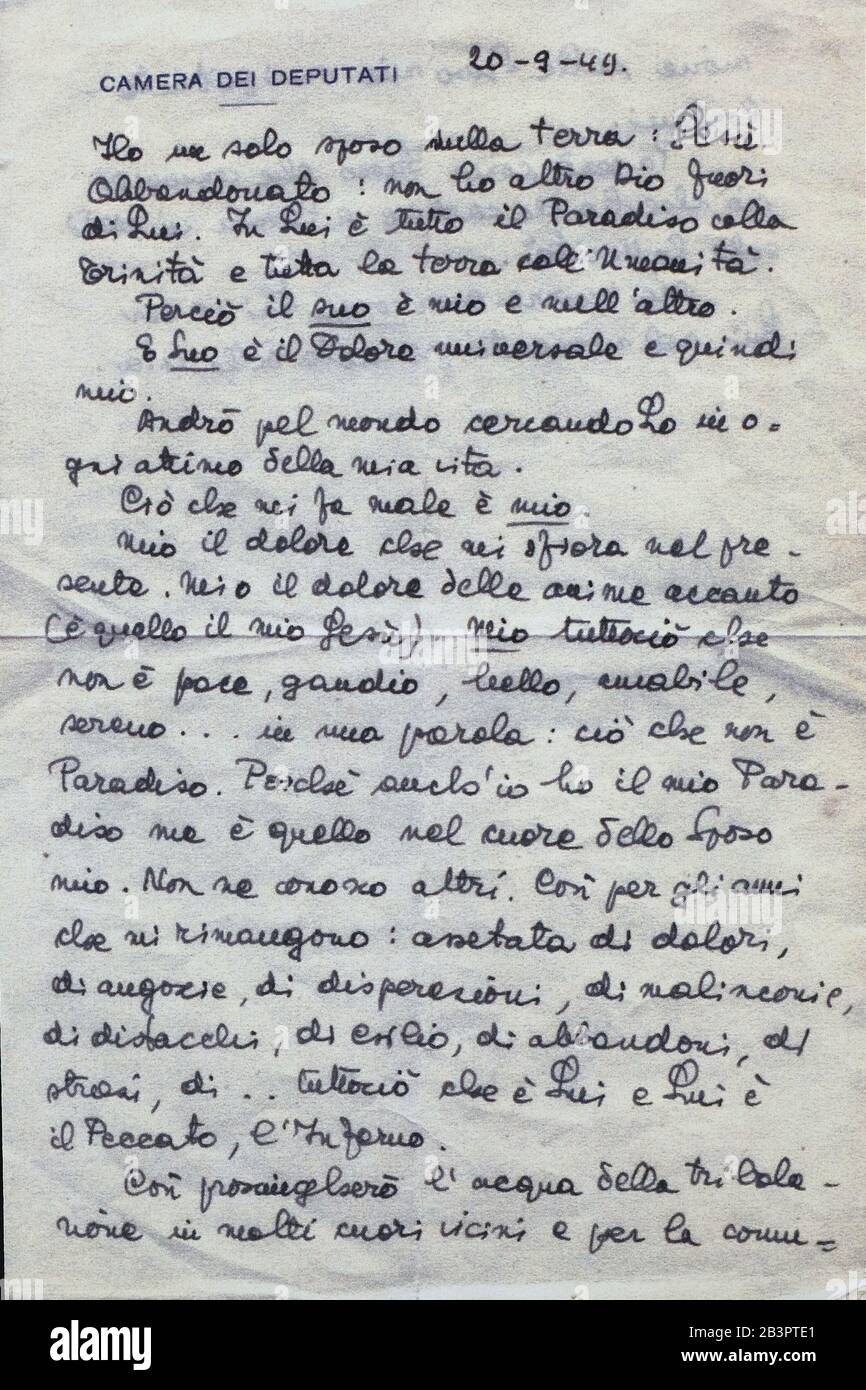 CAMERA DEI DEPUTATI
20-9-49.
Ho un solo sposo sulla terra: Gesù
Abbandonato: non ho altro Dio fuori
di Lui. In Lui è tutto il Paradiso colla
Trinità e tutta la terra coll'Umanità.
Perciò il suo è mio e null'altro.
E Suo è il Dolore universale e quindi
mio.
Andrò pel mondo cercandoLo in o=
gni attimo della mia vita.
Ciò che mi fa male è mio.
Mio il dolore che mi sfiora nel pre-
sente. Mio il dolore delle anime accanto
(è quello il mio Gesù). Mio tuttociò che
non è pace, gaudio, bello, amabile,
sereno... in una parola: ciò che non è
Paradiso. Perchè anch'io ho il mio Para-
diso ma è quello nel cuore dello Sposo
mio. Non ne conosco altri. Così per gli anni
che mi rimangono: assetata di dolori,
di angoscie, di disperazioni, di malinconie,
di distacchi, di esilio, di abbandoni, di
strazi, di .. tuttociò che è Lui e Lui è
il Peccato, l'Inferno.
Così prosciugherò l'acqua della tribola-
zione in molti cuori vicini e per la comu=
alamy
Image ID: 2B3PTE1
www.alamy.com